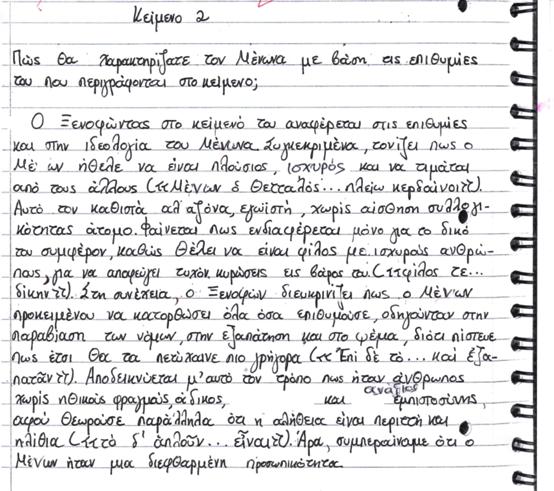 Κείμενο 2
Πώς θα χαρακτηρίζατε τον Μένωνα με βάση τις επιθυμίες
του που περιγράφονται στο κείμενο;
Ο Ξενοφώντας στο κείμενό του αναφέρεται στις επιθυμίες
και στην ιδεολογία του Μένωνα. Συγκεκριμένα, τονίζει πως ο
Μέ ων ήθελε να είναι πλούσιος, ισχυρός και να τιμάται
από τους άλλους (<<Μένων δ Θετταλός... πλείω κερδαίνοι>>).
Αυτό τον καθιστά αλαζόνα, εγωιστή, χωρίς αίσθηση συλλογι-
κότητας άτομο. Φαίνεται πως ενδιαφέρεται μόνο για το δικό
του συμφέρον, καθώς θέλει να είναι φίλος με ισχυρούς ανθρώ-
πους, για να αποφεύγει τυχόν κυρώσεις εις βάρος του (<<φίλος τε...
δίκην>>). Στη συνέχεια, ο Ξενοφών διευκρινίζει πως ο Μένων
προκειμένου να κατορθώσει όλα όσα επιθυμούσε, οδηγούνταν στην
παραβίαση των νόμων, στην εξαπάτηση και στο ψέμα, διότι πίστευε
πως έτσι θα τα πετύχαινε πιο γρήγορα (<<Ἐπὶ δὲ τὸ... καὶ ἐξα-
πατᾶν>>). Αποδεικνύεται μ'αυτό τον τρόπο πως ήταν άνθρωπος
χωρίς ηθικούς φραγμούς, άδικος, και ανάξιος εμπιστοσύνης,
αφού θεωρούσε παράλληλα ότι η αλήθεια είναι περιττή και
ηλίθια (<<τὸ δ' ἁπλοῦν... εἶναι>>). Άρα, συμπεραίνουμε ότι ο
Μένων ήταν μια διεφθαρμένη προσωπικότητα.